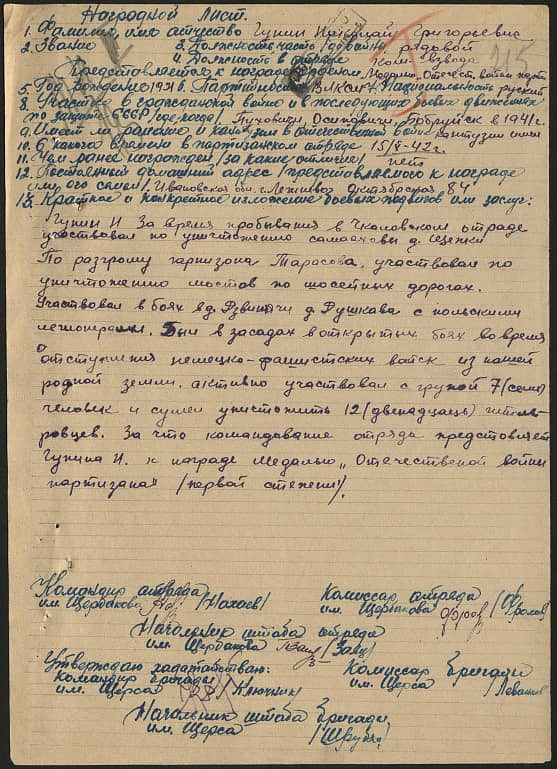 Наградной Лист.
1. Фамилия, имя отчество Гунин Николай Григорьевич
2. Звание 3. Должность часть рядовой
4. Должность в отряде Ком. взвода
Представляется к награде Медалью „Отечеств. войны парт.
5. Год рождения 6. Партийность ВЛКСМ 7. Национальность русский
8. Участие в гражданской войне и в последующих боевых движениях
по защите СССР /где, когда/ Пуховичи, Осиповичи, Бобруйск в 1941 г.
9. Имеет ли ранения и контузии в отечественной войне
10. С какого времени в партизанском отряде 15/V-42 г.
11. Чем ранее награжден, за какие отличия/ нет
12. Постоянный домашний адрес /представляемого к награде
или его семьи/ Ивановская обл. г. Лежнево Октябрская 84
13. Краткое и конкретное изложение боевых подвигов или заслуг:
Гунин Н За время пребывания в Чкаловском отряде
участвовал по уничтожению самааховы д.
По розгрому гарнизона Тарасова, участвовал по
уничтожению мостов по шосетных дорогах.
Участвовал в боях в д. д. Рушкава с польскими
легионерами. Был в засадах в открытых боях во время
отступления немецко-фашистских войск из нашей
родной земли. активно участвовал с групой 7 (семи)
человек и сумел уништожить 12 (двенадцаць) гитле-
ровцев. За что командование отряда предстовляет
Гунина Н. к награде Медалью „Отечественой войны
партизана" /первой степени/.
Командир отряда Комиссар отряда
им. Щербакова /Нахаев/ им. Щербакова /Фролов/
Начальник штаба отряда
им. Щербакова /Заяц/
Утверждаю хадатайстваю:
Командир бригады Комиссар бригады
им. Щорса /Ключник/ им. Щорса
Начальник штаба бригады
им. Щорса